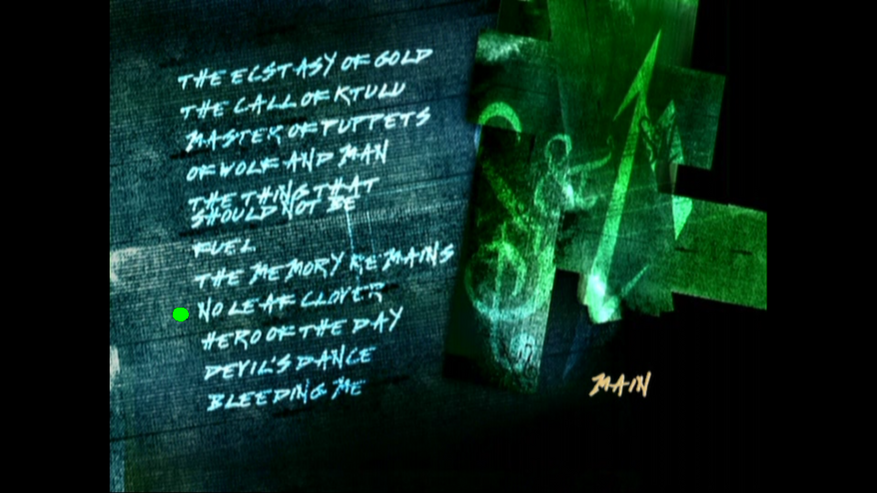 THE ECSTASY OF GOLD
THE CALL OF KTULU
MASTER OF PUPPETS
OF WOLF AND MAN
THE THING THAT
SHOULD NOT BE
FUEL
THE MEMORY REMAINS
NO LEAF CLOVER
HERO OF THE DAY
DEVIL'S DANCE
BLEEDING ME
MAIN